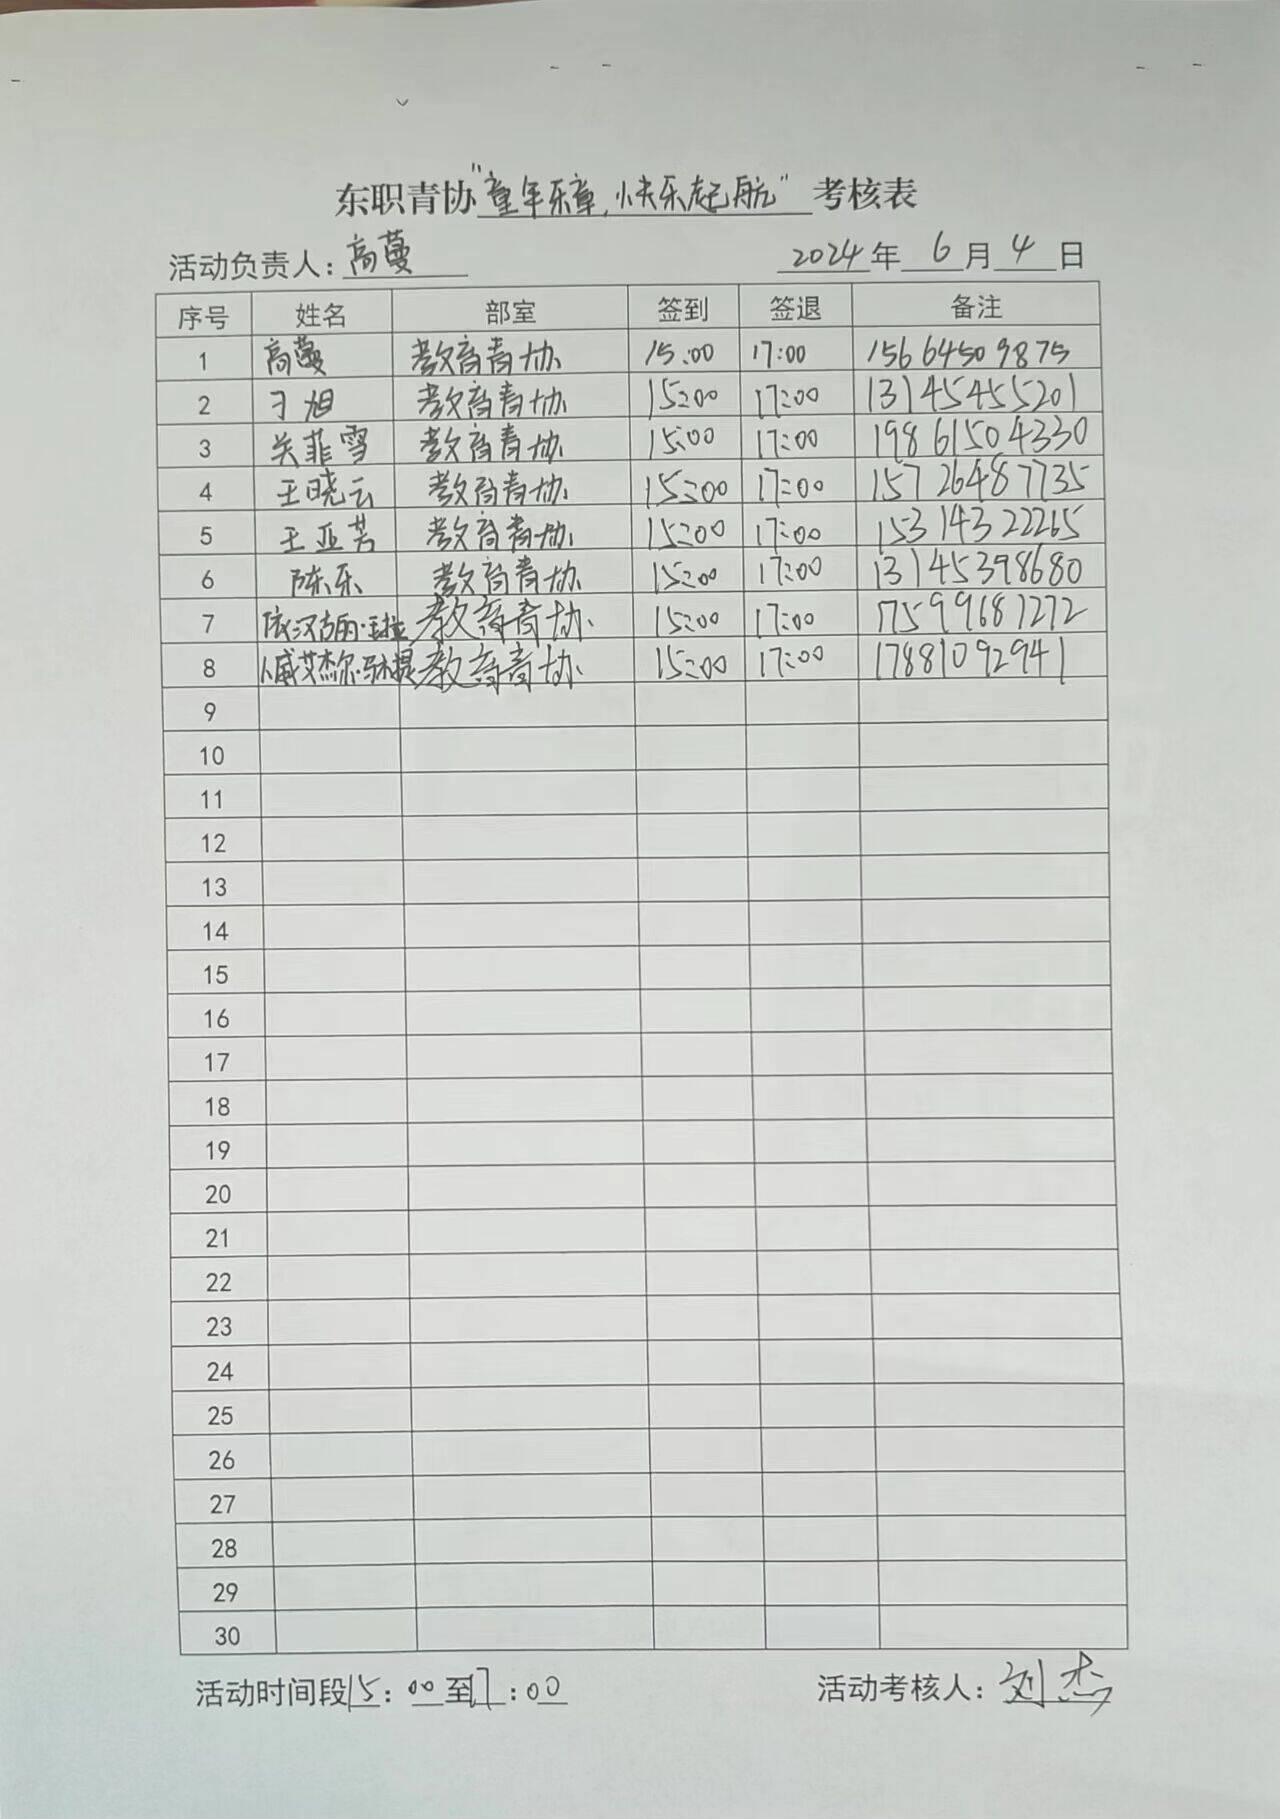 东职青协“童年乐章,快乐起航”考核表
活动负责人:高蔓 2024年6月4日
序号 姓名 部室 签到 签退 备注
1 高蔓 教育青协 15:00 17:00 15664509875
2 于旭 教育青协 15:00 17:00 13145455201
3 关菲雪 教育青协 15:00 17:00 19861504330
4 王晓云 教育青协 15:00 17:00 15726487735
5 王亚芳 教育青协 15:00 17:00 15314322265
6 陈乐 教育青协 15:00 17:00 13145398680
7 教育青协 15:00 17:00 17599687272
8 教育青协 15:00 17:00 17881092941
9
10
11
12
13
14
15
16
17
18
19
20
21
22
23
24
25
26
27
28
29
30
活动时间段15:00至17:00 活动考核人:刘杰